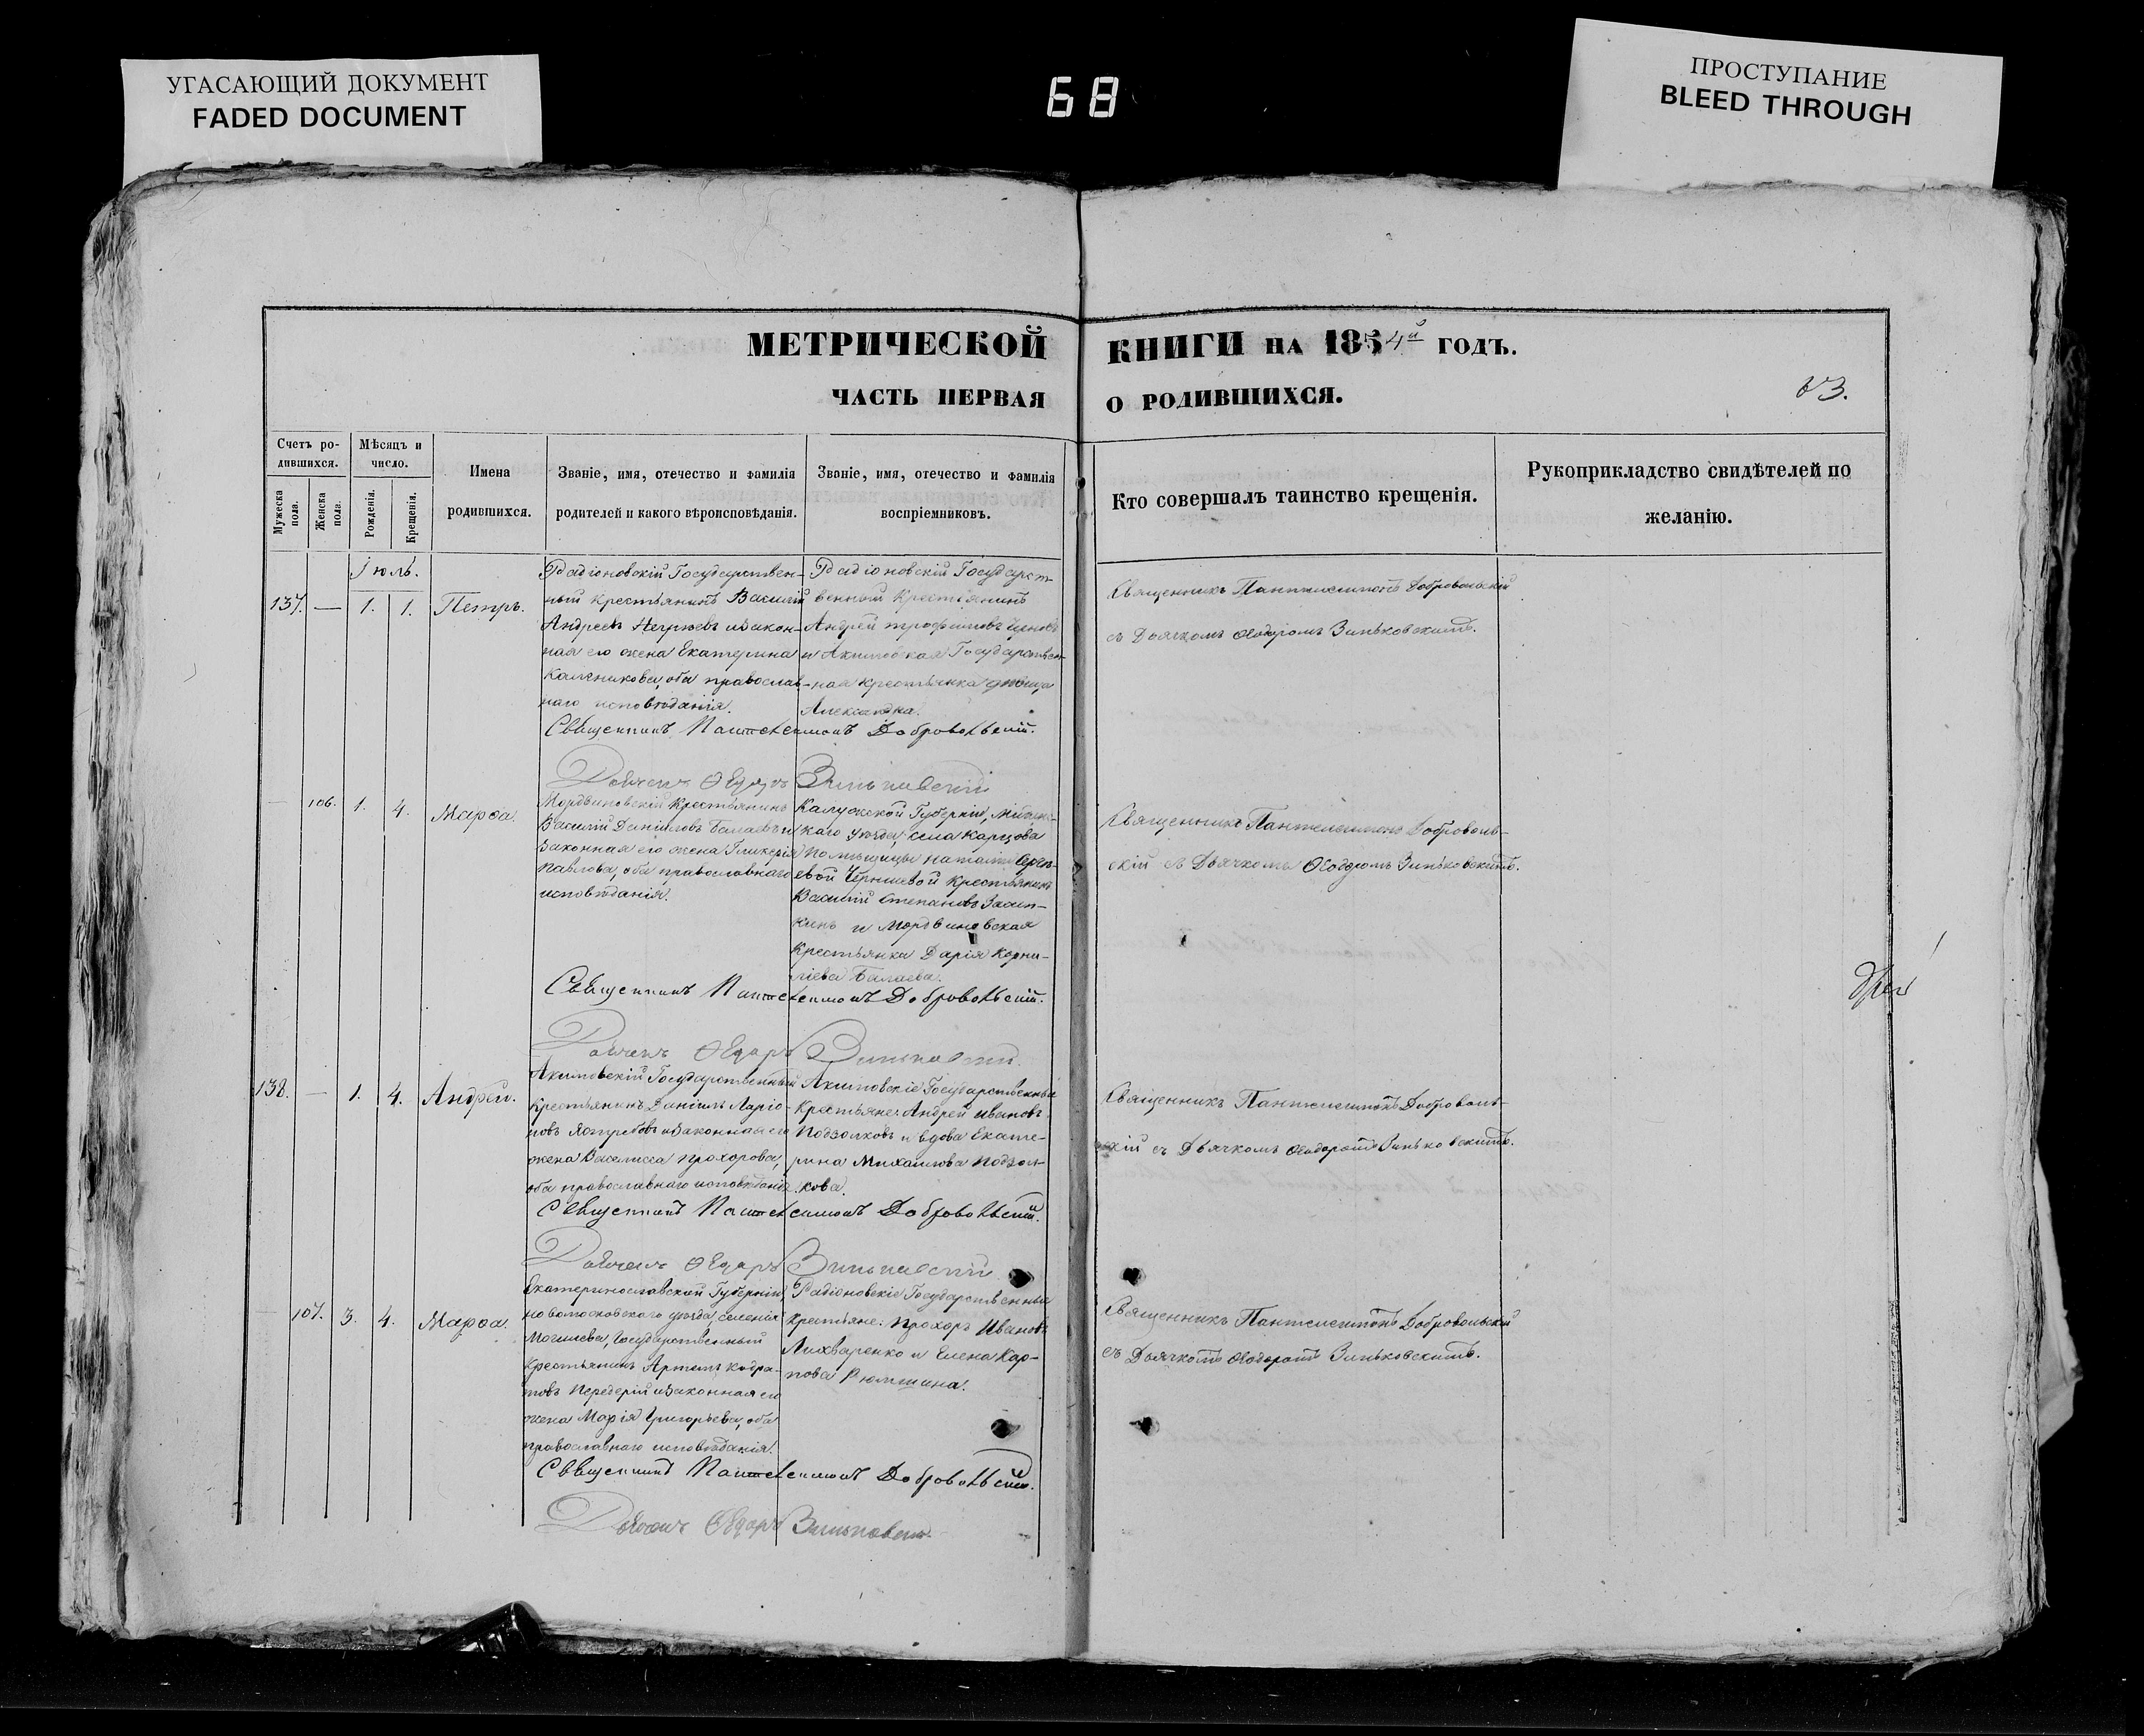 УГАСАЮЩИЙ ДОКУМЕНТ
FADED DOCUMENT
68
ПРОСТУПАНИЕ
BLEED THROUGH
МЕТРИЧЕСКОЙ КНИГИ НА 1854й ГОДЪ.
ЧАСТЬ ПЕРВАЯ О РОДИВШИХСЯ.
63.
Счетъ ро-
дившихся.
Мужеска пола.
Женска пола.
Мѣсяцъ и
число.
Рожденія.
Крещенія.
Имена
родившихся.
Званіе, имя, отечество и фамилія
родителей и какого вѣроисповѣданія.
Званіе, имя, отечество и фамилія
воспріемниковъ.
Кто совершалъ таинство крещенія.
Рукоприкладство свидѣтелей по
желанію.
Іюль.
137. — 1. 1. Петръ.
Радіоновскій Государствен-
ный крестьянинъ Василій
Андреевъ и закон-
ная его жена Екатерина
оба православ-
наго исповѣданія.
Радіоновскій Государст-
венный Крестьянинъ
Андрей Трофимовъ
и Акимовская Государствен-
ная крестьянка
Священникъ Пантелеимонъ Добровольскій
съ Дьячкомъ Ѳеодоромъ Зиньковскимъ.
Священникъ Пантелеимонъ Добровольскій.
Дьячекъ Ѳедоръ Зиньковскій
106. 1. 4. Марѳа.
Мордвиновскій Крестьянинъ
Василій Даніиловъ Балаевъ и
законная его жена Гликерія
Павлова, оба православнаго
исповѣданія.
Калужской Губерніи,
уѣзда, села Карцова
Помѣщицы Наталіи Серге-
евой Чернышевой Крестьянинъ
Василій Степановъ
и Мордвиновская
Крестьянка Дарія Корни-
ліева Балаева.
Священникъ Пантелеимонъ Доброволь-
скій съ Дьячкомъ Ѳеодоромъ Зиньковскимъ.
Священникъ Пантелеимонъ Добровольскій.
Дьячекъ Ѳедоръ Зиньковскій
138. — 1. 4. Андрей.
Акимовскій Государственный
Крестьянинъ Даніилъ Ларіо-
новъ Ястребовъ и законная его
жена Василисса Прохорова,
оба православнаго исповѣданія.
Акимовскіе Государственные
Крестьяне: Андрей Ивановъ
Подзолковъ и вдова Екате-
рина Михайлова Подзол-
кова.
Священникъ Пантелеимонъ Доброволь-
скій съ Дьячкомъ Ѳеодоромъ Зиньковскимъ.
Священникъ Пантелеимонъ Добровольскій.
Дьячекъ Ѳедоръ Зиньковскій
107. 3. 4. Марѳа.
Екатеринославской Губерніи,
Новомосковскаго уѣзда, селенія
Могилева, Государственный
Крестьянинъ Артемъ Кодра-
товъ Передерій и законная его
жена Марія Григорьева, оба
православнаго исповѣданія.
Радіоновскіе Государственные
Крестьяне: Прохоръ Ивановъ
Лихваренко и Елена Кар-
пова Рюмшина.
Священникъ Пантелеимонъ Добровольскій
съ Дьячкомъ Ѳеодоромъ Зиньковскимъ.
Священникъ Пантелеимонъ Добровольскій.
Дьячекъ Ѳедоръ Зиньковскій